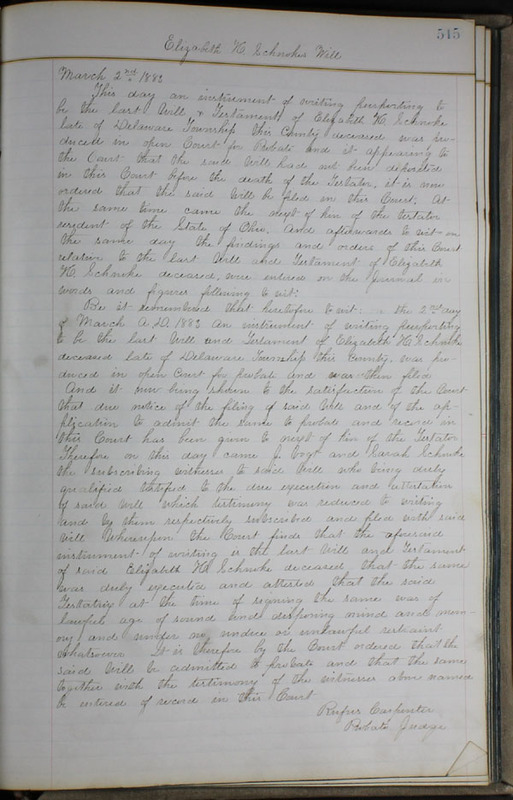 515
Elizabeth H. Schnoke Will
March 2nd 1882
This day an instrument of writing purporting to
be the last Will & Testament of Elizabeth H. Schnoke
late of Delaware Township this County deceased was pro-
duced in open Court for Probate and it appearing to
the Court that the said Will had not been deposited
in this Court before the death of the Testator, it is now
ordered that the said Will be filed in this Court. At
the same time came the next of kin of the testator
resident of the State of Ohio. And afterwards to wit on
the same day the findings and orders of this Court
relative to the last Will and Testament of Elizabeth
H. Schnoke deceased, were entered on the Journal in
words and figures following to wit:
Be it remembered that heretofore to wit: the 2nd day
of March A.D. 1882 An instrument of writing purporting
to be the last Will and Testament of Elizabeth H. Schnoke
deceased late of Delaware Township this County, was pro-
duced in open Court for probate and was then filed
And it now being shown to the satisfaction of the Court
that due notice of the filing of said Will and of the ap-
plication to admit the same to probate and record in
this Court has been given to next of kin of the Testator
Therefore on this day came J. and Sarah Schnoke
the subscribing witnesses to said Will who being duly
qualified testified to the due execution and attestation
of said Will which testimony was reduced to writing
and by them respectively subscribed and filed with said
Will Whereupon the Court finds that the aforesaid
instrument of writing is the last Will and Testament
of said Elizabeth H. Schnoke deceased, that the same
was duly executed and attested that the said
at the time of signing the same was of
lawful age of sound and disposing mind and mem-
ory and under no undue or unlawful restraint
whatsoever It is therefore by the Court ordered that the
said Will be admitted to probate and that the same
together with the testimony of the witnesses above named
be entered of record in this Court
Rufus Carpenter
Probate Judge